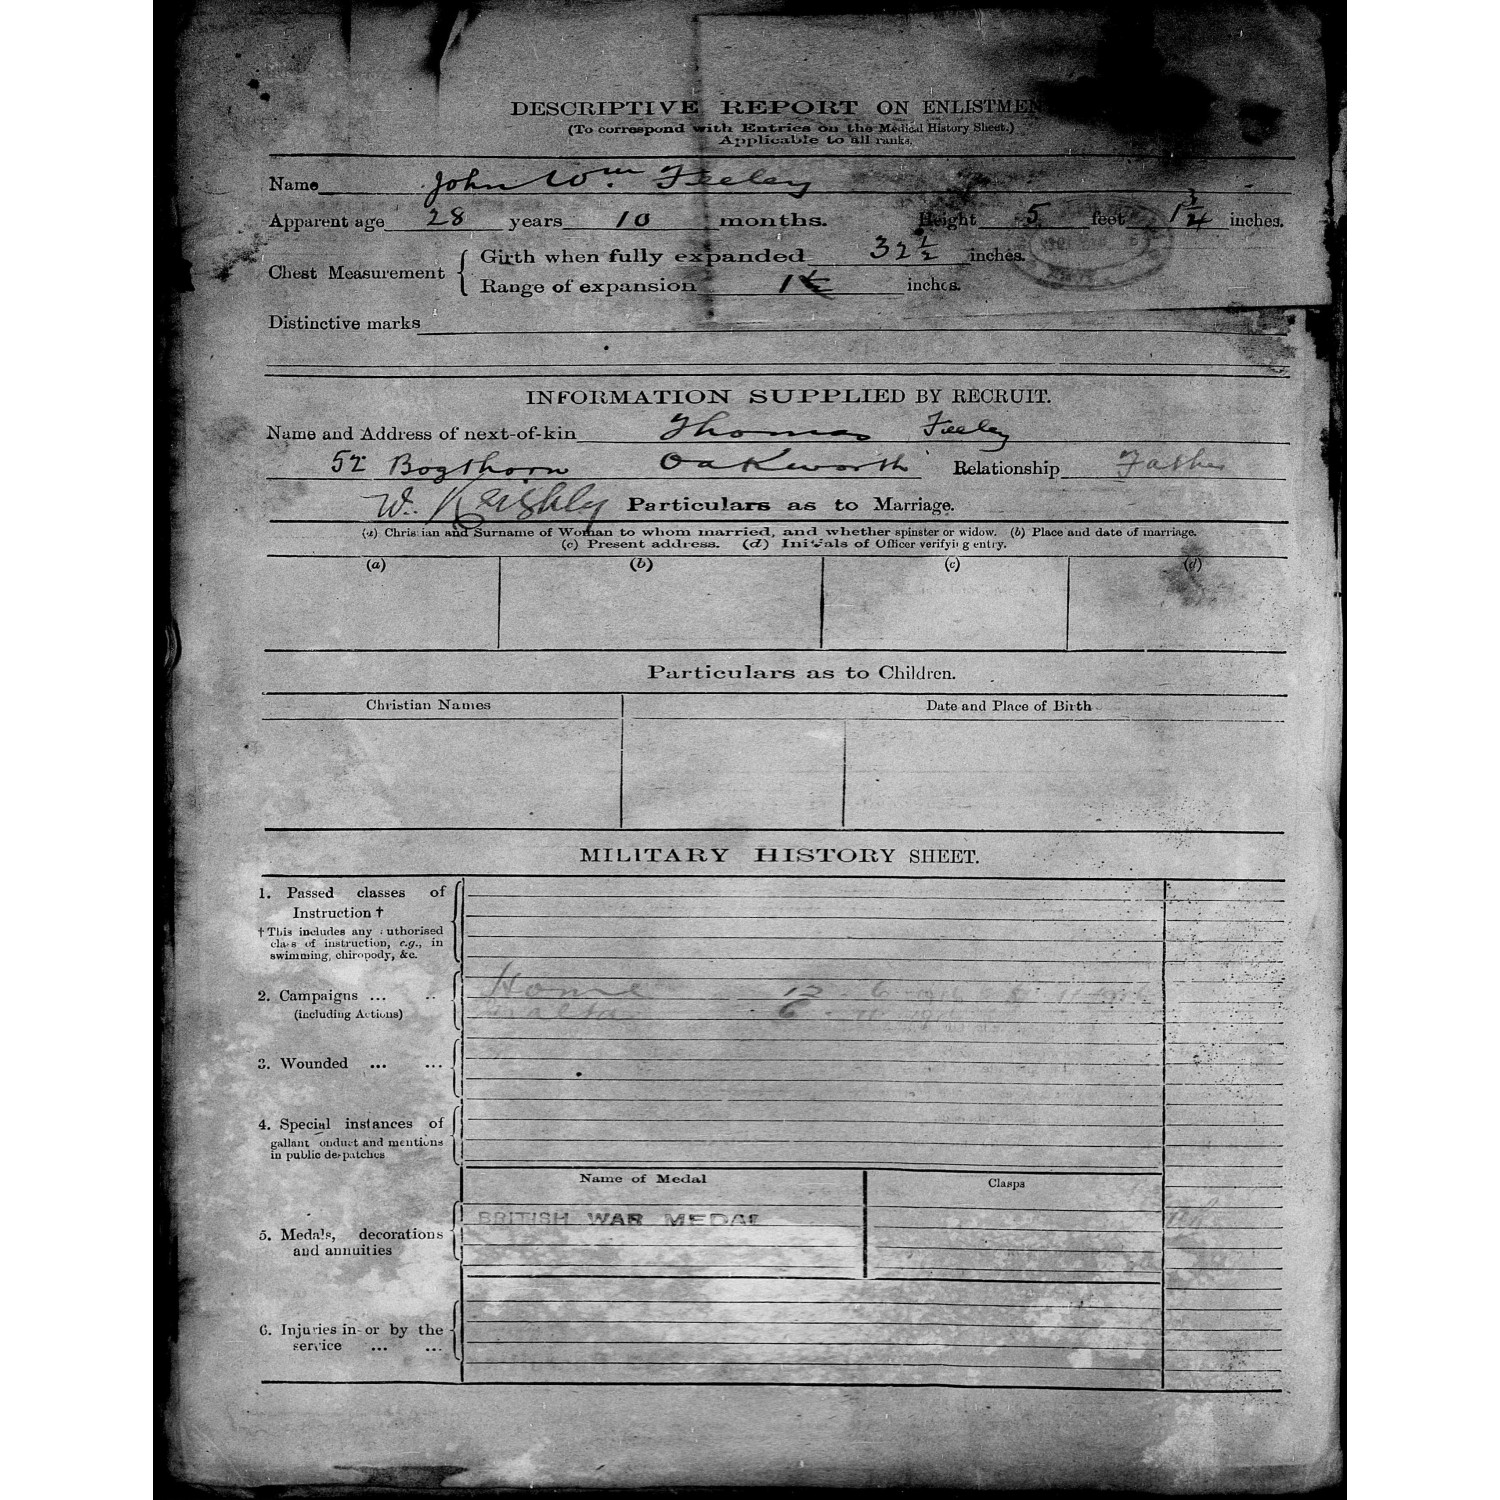 DESCRIPTIVE REPORT ON ENLISTMEN
(To correspond with Entries on the Medical History Sheet.)
Applicable to all ranks.
Name John Wm Feeley
Apparent age 28 years 10 months. Height 5 feet 1 3/4 inches.
Chest Measurement { Girth when fully expanded 32 1/2 inches.
Range of expansion 1 1/2 inches.
Distinctive marks
INFORMATION SUPPLIED BY RECRUIT.
Name and Address of next-of-kin Thomas Feeley
52 Bogthorn Oakworth Relationship Father
W. Keighley Particulars as to Marriage.
(a) Christian and Surname of Woman to whom married, and whether spinster or widow. (b) Place and date of marriage.
(c) Present address. (d) Initials of Officer verifying entry.
(a) (b) (c) (d)
Particulars as to Children.
Christian Names Date and Place of Birth
MILITARY HISTORY SHEET.
1. Passed classes of
Instruction †
† This includes any authorised
class of instruction, e.g., in
swimming, chiropody, &c.
2. Campaigns ... .. Home 12 6 1916 5 11 1916
(including Actions) Malta 6 11 1916
3. Wounded ... ...
4. Special instances of
gallant conduct and mentions
in public despatches
Name of Medal Clasps
BRITISH WAR MEDAL
5. Medals, decorations
and annuities
6. Injuries in or by the
service ... ...